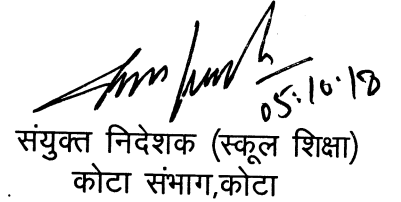 05.10.18
संयुक्त निदेशक (स्कूल शिक्षा)
कोटा संभाग,कोटा